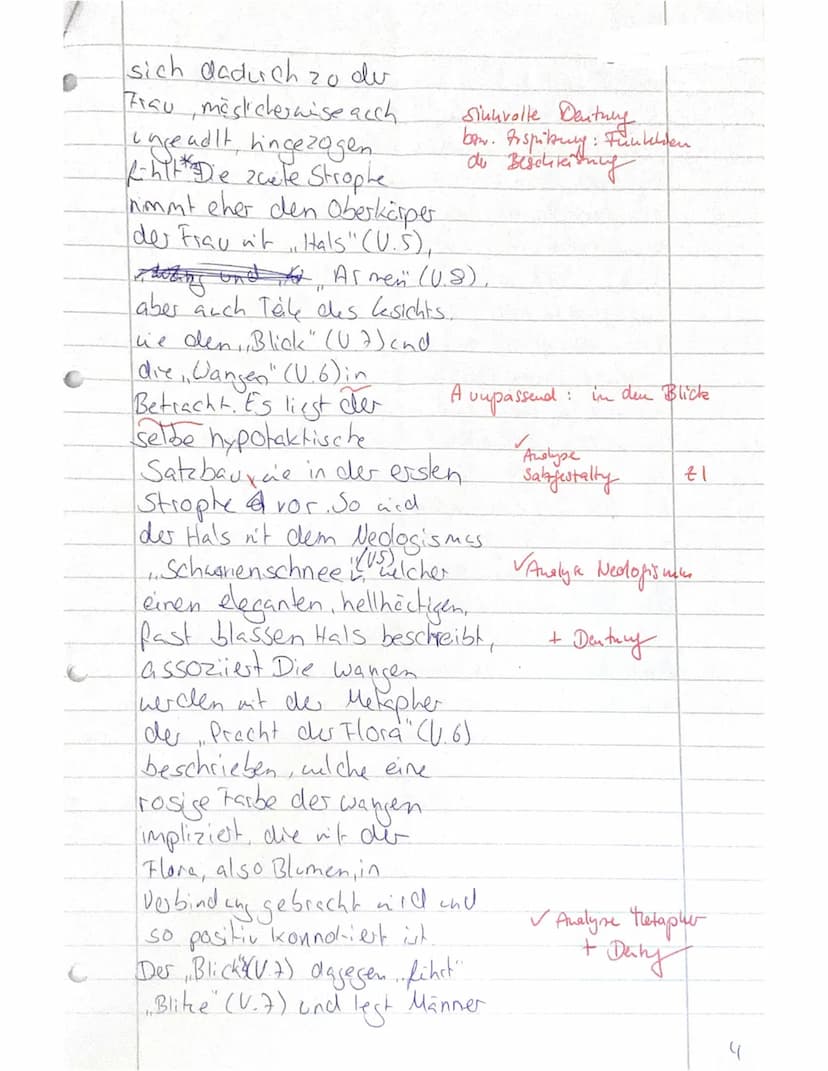 sich dadurch zu der
Frau, möglicherweise auch
ungewollt, hingezogen
fühlt.* Die zweite Strophe
nimmt eher den Oberkörper
der Frau mit „Hals" (V.5),
„Armen" (V.8),
aber auch Teile des Gesichts
wie den „Blick" (V.7) und
die „Wangen" (V.6) in
Betracht. Es liegt der
selbe hypotaktische
Satzbau wie in der ersten
Strophe vor. So wird
der Hals mit dem Neologismus
„Schwanenschnee" (V.5), welcher
einen eleganten, hellhäutigen,
fast blassen Hals beschreibt,
assoziiert. Die Wangen
werden mit der Metapher
der „Pracht der Flora" (V.6)
beschrieben, welche eine
rosige Farbe der Wangen
impliziert, die mit der
Flora, also Blumen, in
Verbindung gebracht wird und
so positiv konnotiert ist.
Der „Blick" (V.7) dagegen „führt"
„Blitze" (V.7) und legt Männer
sinnvolle Deutung
bzw. : Funktion
der Beschreibung
A unpassend: in den Blick
✓
Analyse
Satzgestaltg
Z1
✓ Analyse Neologismus
+ Deutung
✓ Analyse Metapher
+ Deutg
4